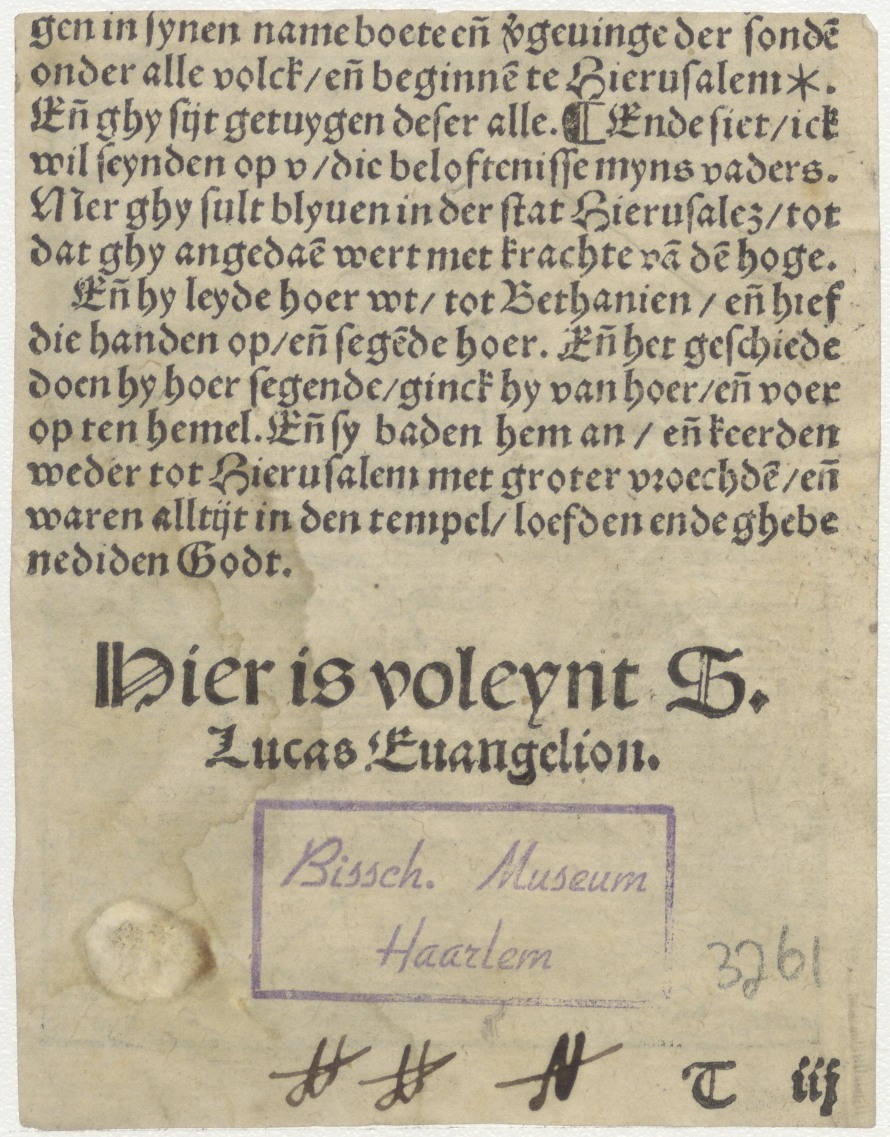 gen in synen name boete eñ v̄geuinge der sondē
onder alle volck/eñ beginnē te Hierusalem*.
Eñ ghy sijt getuygen deser alle. ¶ Ende siet/ick
wil seynden op v/die beloftenisse myns vaders.
Mer ghy sult blyuen in der stat Hierusalez/tot
dat ghy angedaē wert met krachte vā dē hoge.
Eñ hy leyde hoer wt/ tot Bethanien / eñ hief
die handen op/eñ segēde hoer. Eñ het geschiede
doen hy hoer segende/ginck hy van hoer/eñ voer
op ten hemel. Eñ sy baden hem an / eñ keerden
weder tot Hierusalem met groter vroechdē/eñ
waren alltijt in den tempel/ loefden ende ghebe
nediden Godt.
Hier is voleynt S.
Lucas Euangelion.
Bissch. Museum
Haarlem
3261
T iij